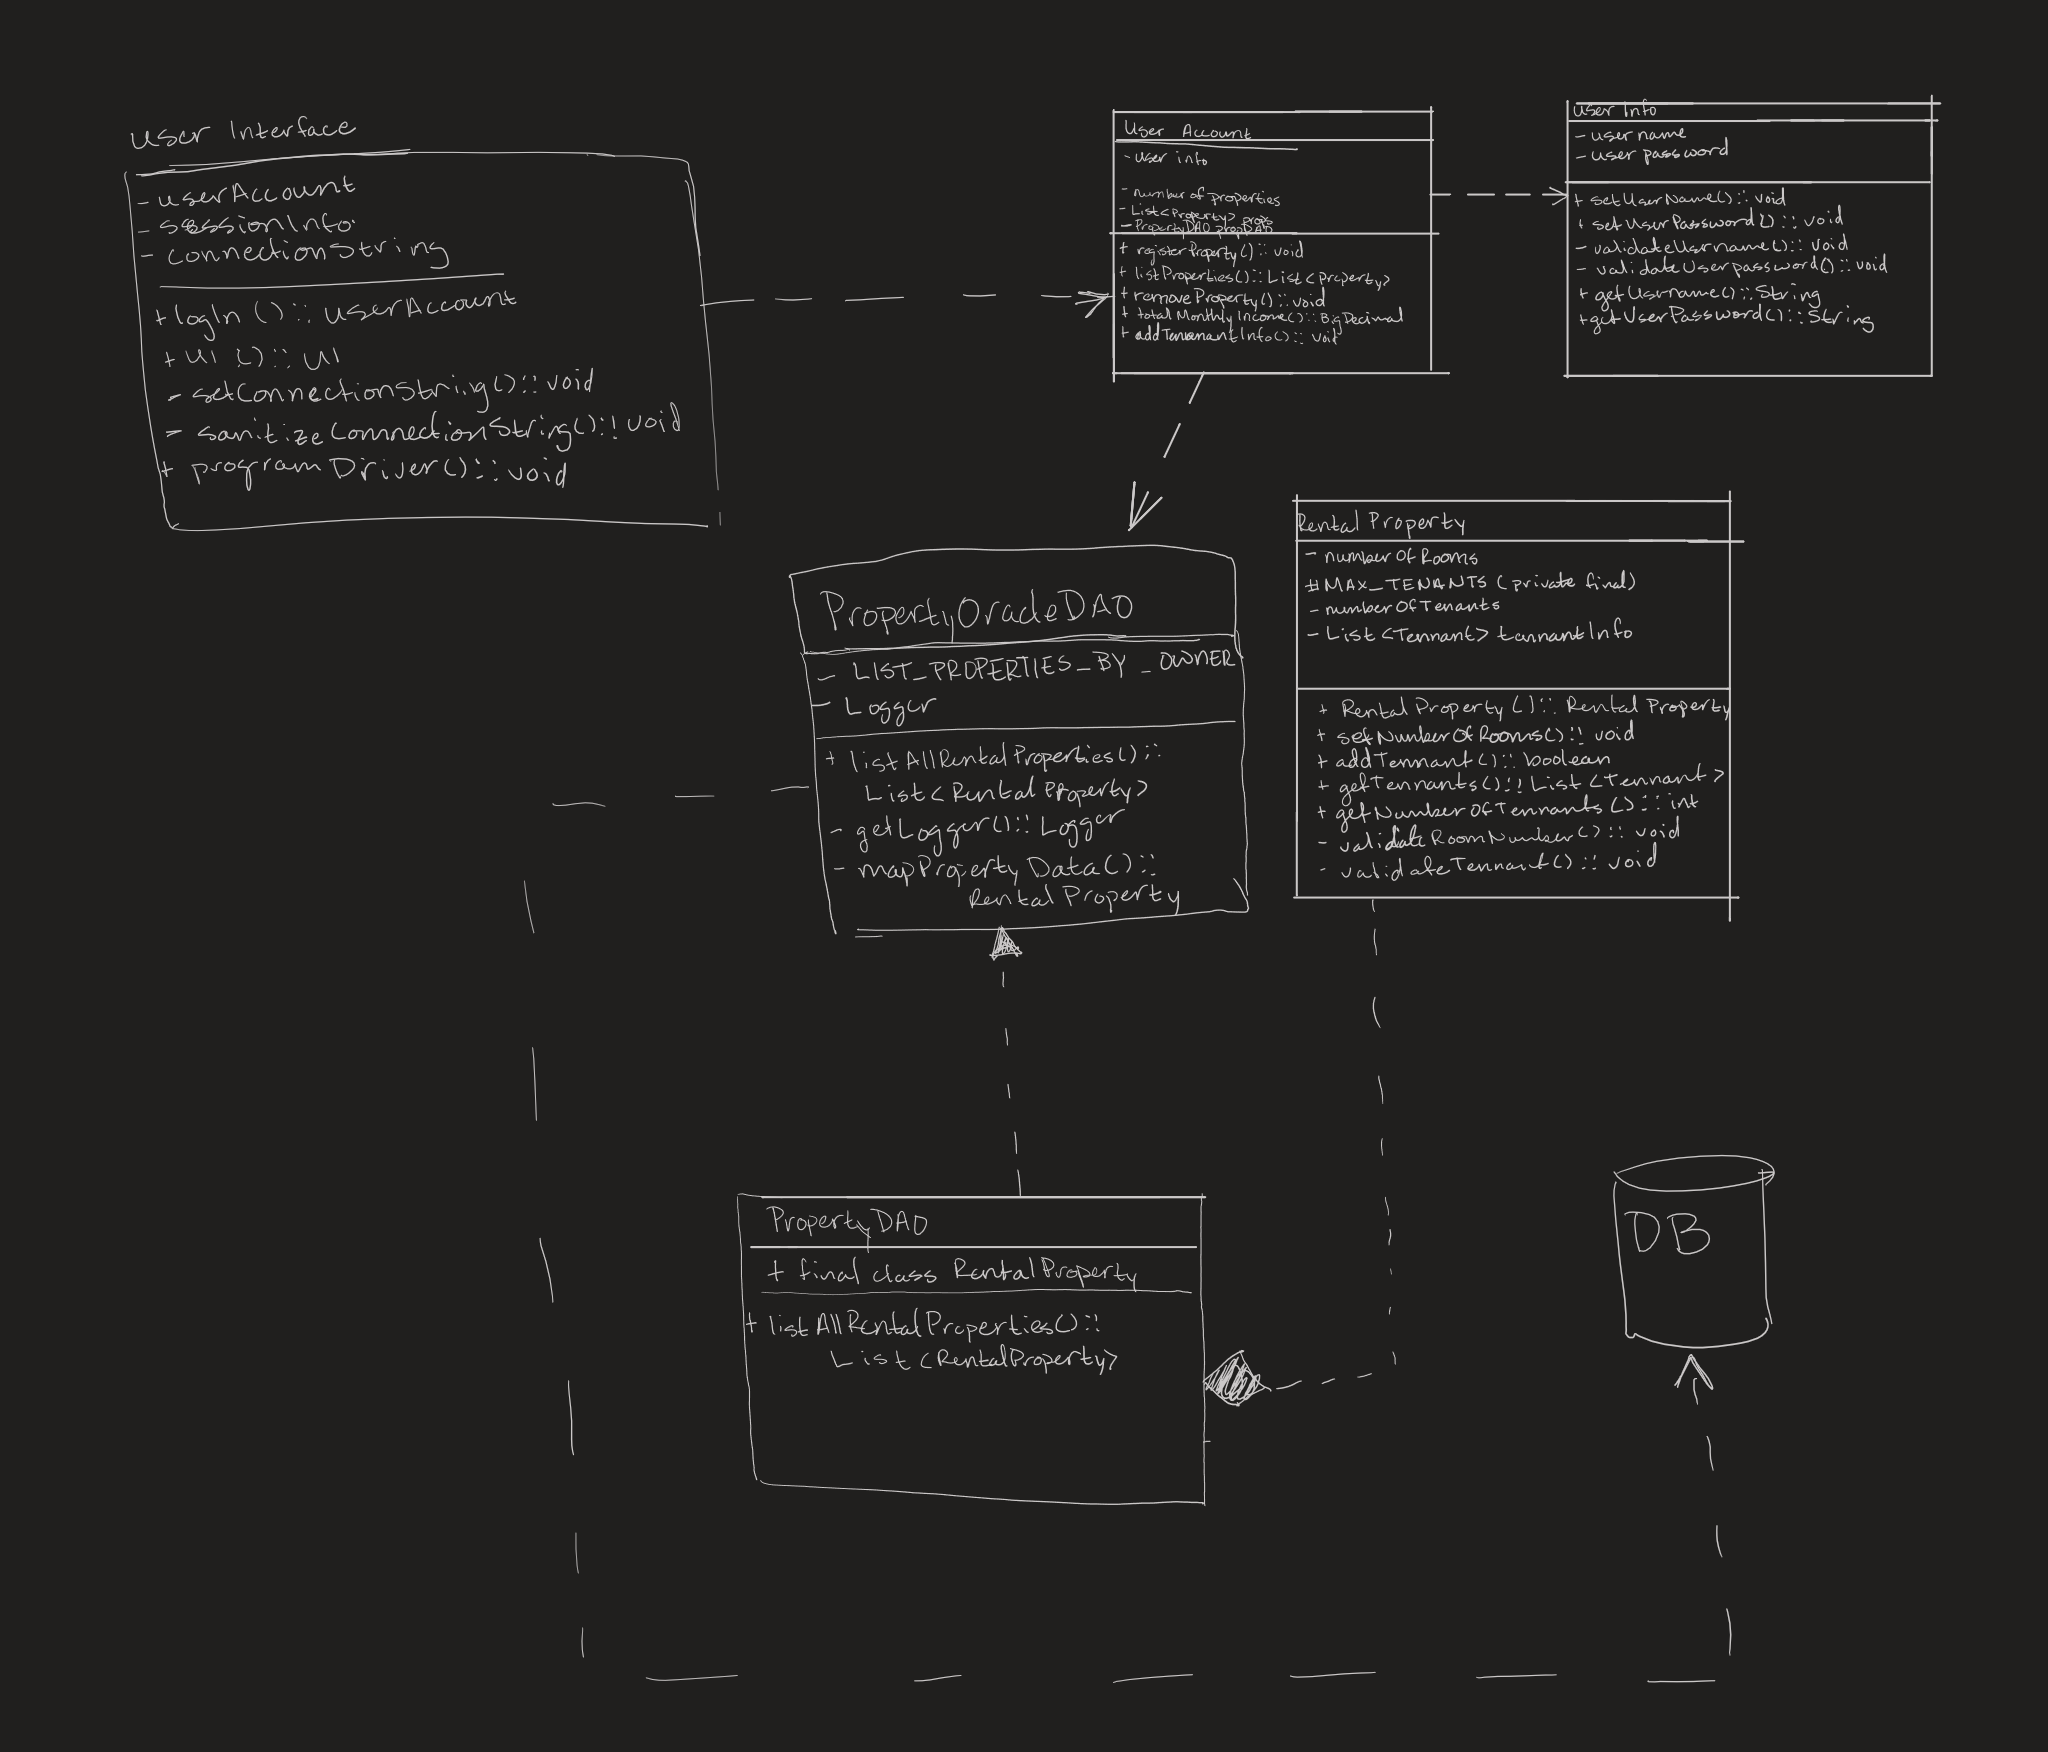 User Interface
- userAccount
- sessionInfo
- connectionString
+ logIn ():: userAccount
+ UI ():: UI
- setConnectionString():: void
- sanitizeConnectionString():: void
+ programDriver():: void
User Account
- user info
- number of properties
- List<Property> props
- PropertyDAO propDAO
+ registerProperty():: void
+ listProperties():: List<property>
+ removeProperty():: void
+ totalMonthlyIncome():: BigDecimal
+ addTenenantInfo():: void
User Info
- user name
- user password
+ setUserName():: void
+ setUserPassword():: void
- validateUsername():: void
- validateUserpassword():: void
+ getUsrname():: String
+ getUserPassword():: String
PropertyOracleDAO
- LIST_PROPERTIES_BY_OWNER
- Logger
+ listAllRentalProperties()::
List<RentalProperty>
- getLogger():: Logger
- mapPropertyData()::
RentalProperty
Rental Property
- numberOfRooms
# MAX_TENANTS (private final)
- numberOfTenants
- List<Tennant> tannantInfo
+ RentalProperty():: RentalProperty
+ setNumberOfRooms():: void
+ addTennant():: boolean
+ getTennants():: List<Tennant>
+ getNumberOfTennants():: int
- validateRoomNumber():: void
- validateTennant():: void
PropertyDAO
+ final class RentalProperty
+ listAllRentalProperties()::
List<RentalProperty>
DB